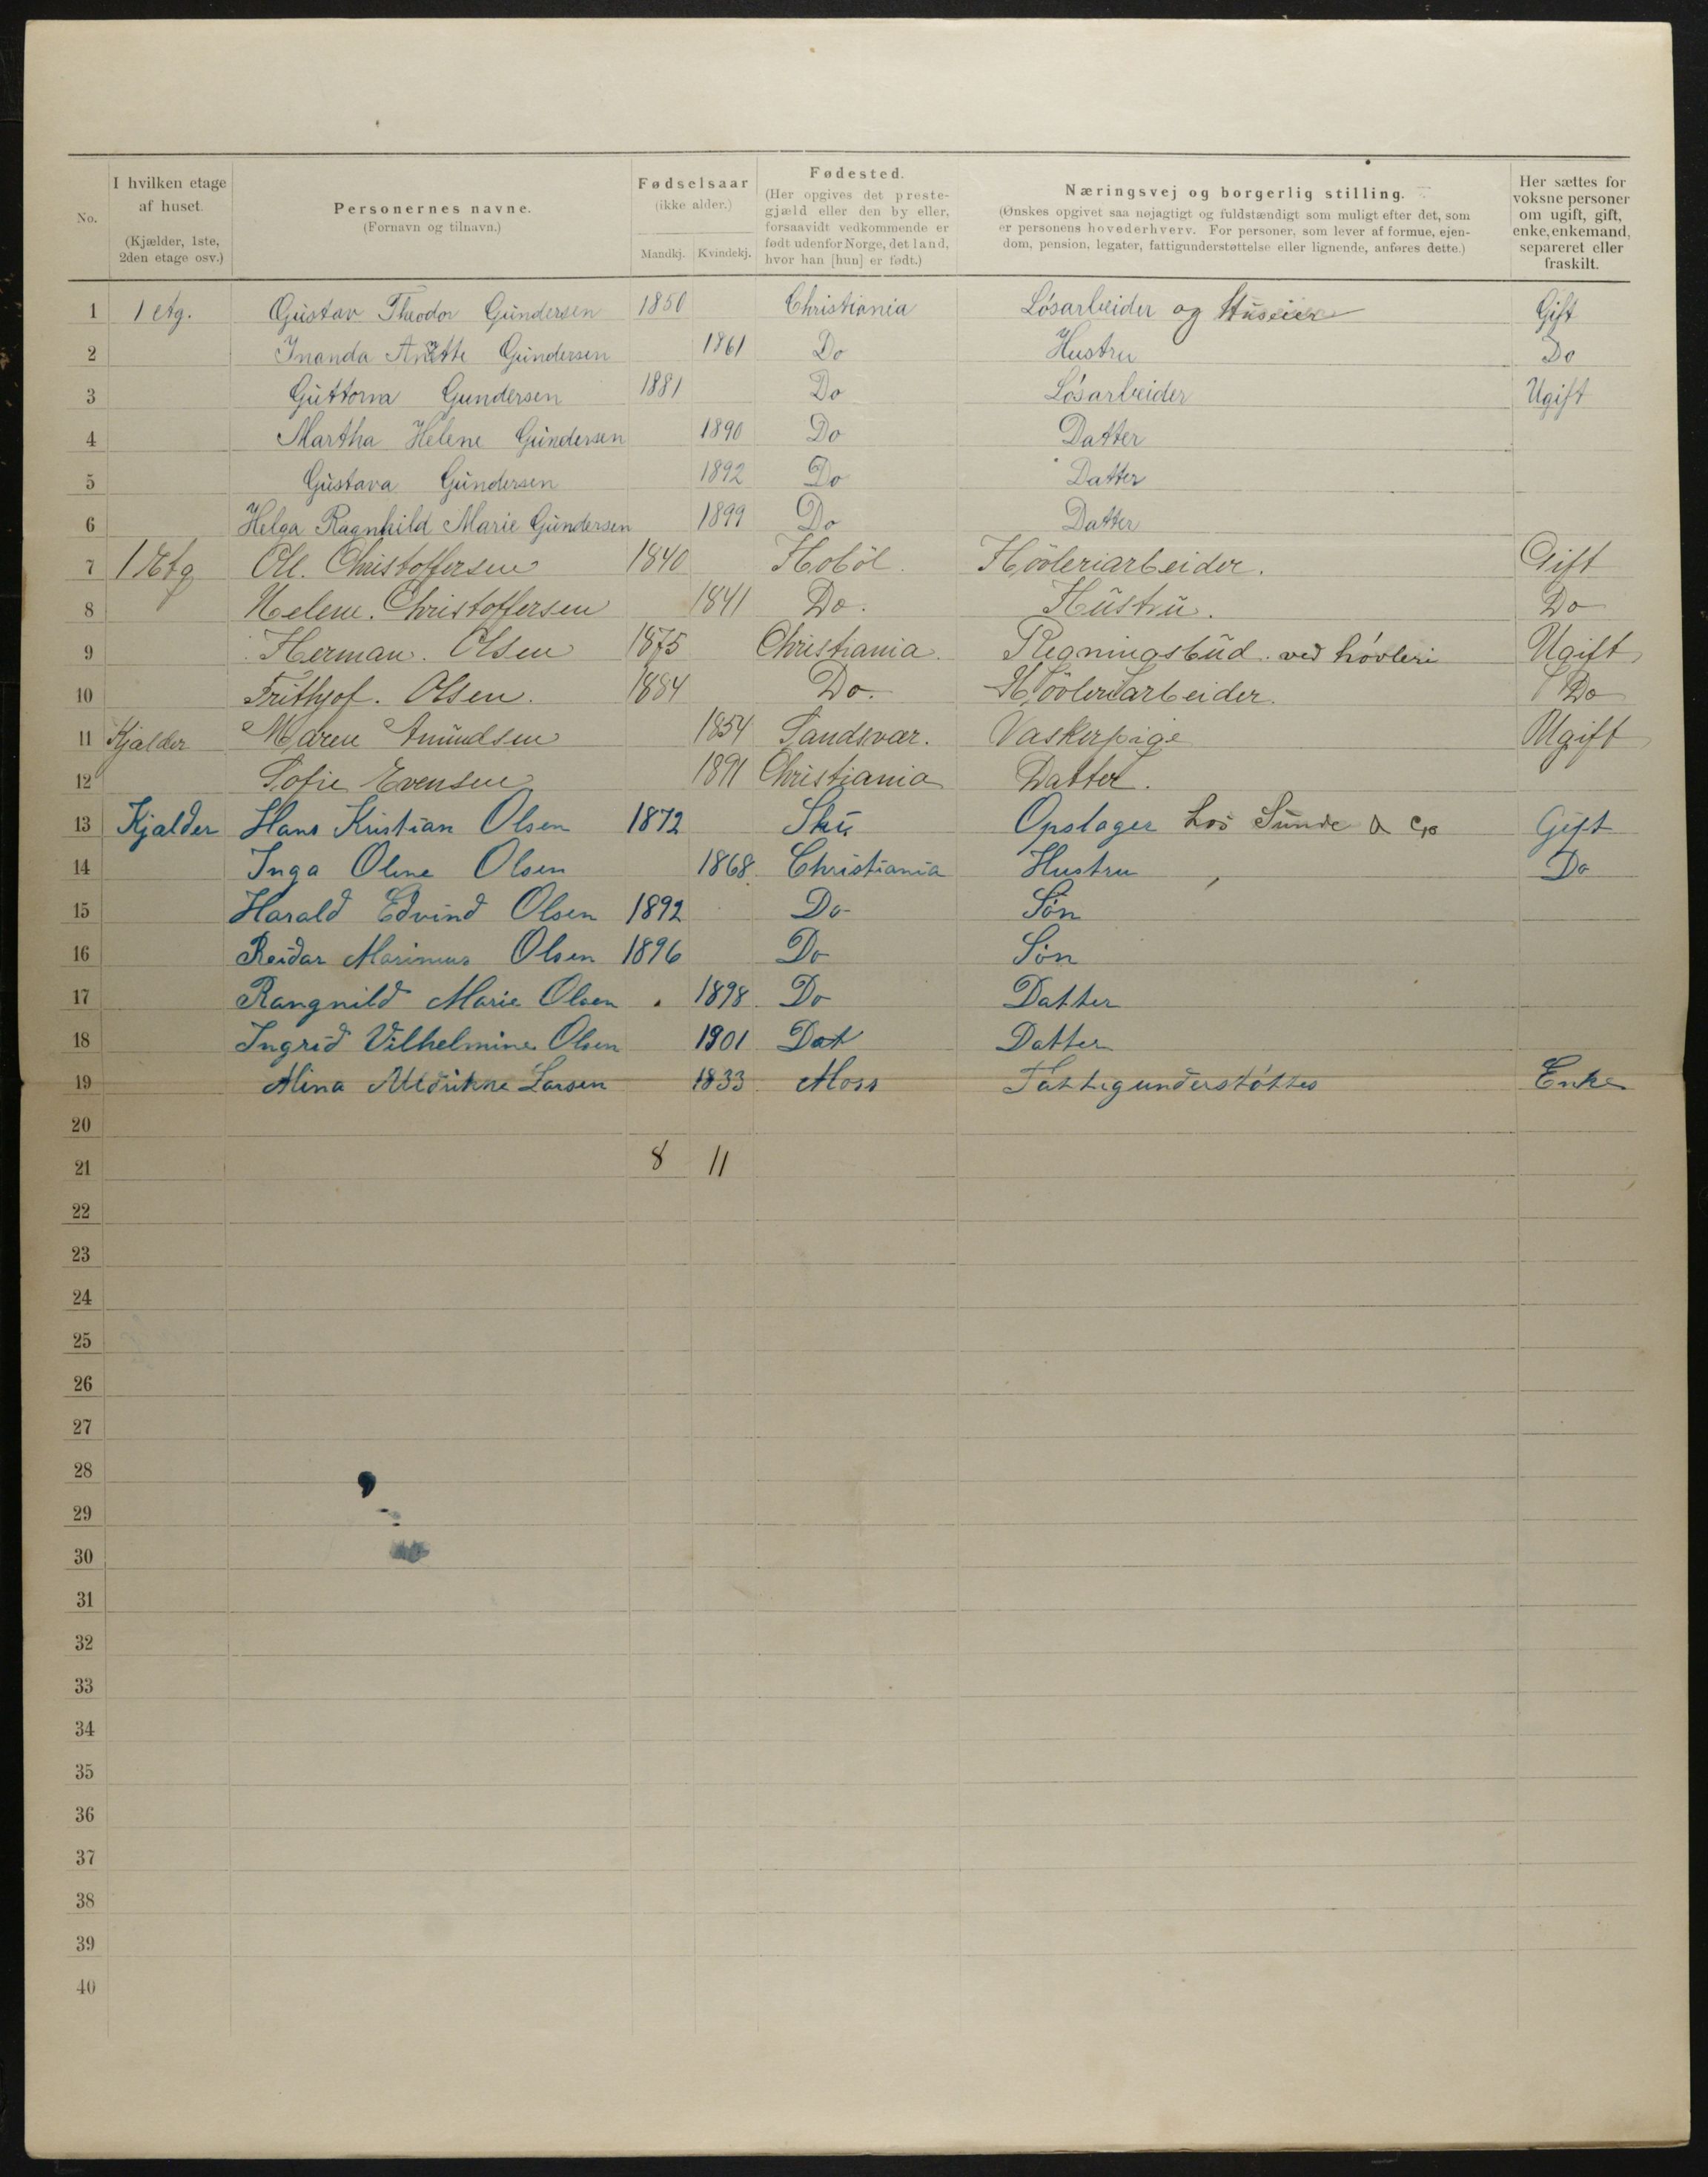 No.
I hvilken etage
af huset.
(Kjælder, 1ste,
2den etage osv.)
Personernes navne.
(Fornavn og tilnavn.)
Fødselsaar
(ikke alder.)
Mandkj. Kvindekj.
Fødested.
(Her opgives det preste-
gjæld eller den by eller,
forsaavidt vedkommende er
født udenfor Norge, det land,
hvor han [hun] er født.)
Næringsvej og borgerlig stilling.
(Ønskes opgivet saa nøjagtigt og fuldstændigt som muligt efter det, som
er personens hovederhverv. For personer, som lever af formue, ejen-
dom, pension, legater, fattigunderstøttelse eller lignende, anføres dette.)
Her sættes for
voksne personer
om ugift, gift,
enke, enkemand,
separeret eller
fraskilt.
1 1 etg. Gustav Theodor Gundersen 1850 Christiania Løsarbeider og Huseier Gift
2 Inanda Anette Gundersen 1861 Do Hustru Do
3 Guttorm Gundersen 1881 Do Løsarbeider Ugift
4 Martha Helene Gundersen 1890 Do Datter
5 Gustava Gundersen 1892 Do Datter
6 Helga Ragnhild Marie Gundersen 1899 Do Datter
7 1 Etg Ole. Christoffersen 1840 Hobøl. Høvleriarbeider. Gift
8 Helene. Christoffersen 1841 Do. Hustru. Do
9 Herman. Olsen 1875 Christiania. Regningsbud. ved høvleri Ugift
10 Frithjof. Olsen. 1884 Do. Høvleriarbeider. Do
11 Kjælder Maren Amundsen 1854 Sandsvær. Vaskerpige Ugift
12 Sofie Evensen 1891 Christiania Datter.
13 Kjælder Hans Kristian Olsen 1872 Ski Opslager hos Sunde & Co Gift
14 Inga Oline Olsen 1868 Christiania Hustru Do
15 Harald Edvind Olsen 1892 Do Søn
16 Reidar Marinius Olsen 1896 Do Søn
17 Rangnild Marie Olsen 1898 Do Datter
18 Ingrid Vilhelmine Olsen 1901 Dat Datter
19 Mina Larsen 1833 Moss Fattigunderstøttes Enke
20
21 8 11
22
23
24
25
26
27
28
29
30
31
32
33
34
35
36
37
38
39
40